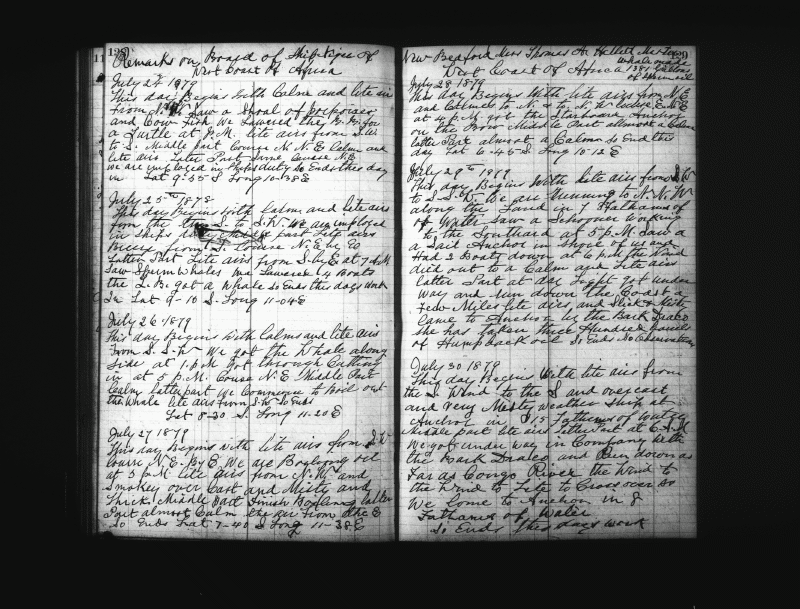 128
Remarks on Board of Ship Bque Of
West Coast Of Africa
July 24 1879
This day Begins with Calm and lite air
from N. W. Saw a Shoal of Porpoises
and Cow Fish We Lowered the for
a Turtle at P.M. lite airs from S.W
to S. Middle part Course N N E Calm and
lite airs Later Part Same Course N.E
we are imployed in Ships duty So Ends this day
in Lat 9-55 S Long 10-38 E
July 25th 187
This day Begins with Calm and lite airs
from the to S.W. We are imployed
in Ships part Lite airs
Breeze from S. Course N.E by E
Latter Part Lite airs from S. by E at 7 A.M
Saw Sperm Whales We Lowered 4 Boats
the L.B. got a Whale So Ends this days work
In Lat 9-10 S. Long 11-04 E
July 26 1879
this day Begins With Calms and lite airs
From S.S.W We got the Whale along
Side at 1 P.M. Got through Cutting
in at 5 P.M. Couse N.E Middle Part
Calm latter part We Commence to Boil out
the Whale lite airs from S.W So Ends
Lat 8-30 S. Long 11-20 E
July 27 1879
This day Begins with lite airs from S.W
Course N.E. By E We are Boyloyng oil
at 5 P.M lite airs from N.W. and
Smokey over Cast and Misty and
Thick Middle Part Finish Boyling latter
Part almost Calm the air From the E
So Ends Lat 7-40 S Long 11-38 E
New Bedford Mass Thomas H. Hallett Master
West Coast Of Africa
Whale made
138 Gallons
July 28 1879
this day Begins With lite airs from N E
and Calmed to N. & to N. W
at 4 P.M got the Starboard Anchor
on the Bow Middle Part allmost a Calm
latter Part almost a Calm So End this
day Lat 6-45 S Long 10-12 E
July 29th 1879
This day Begins With lite airs from S.W
to S-S.W. We are Running to N.N.W
along the Land in 7 Fathams of
Of Water Saw a Schooner Working
to the Southard at 5 P.M. Saw a
a Sail Anchor in Shore of us and
Had 2 Boats down at 6 P.M the Wind
died out to a Calm and Lite airs
latter Part at day Light got under
Way and Run down the Coast a
Few Miles lite airs and Misty
Came to Anchor by the Bark Draco
She has taken three Hundred Barrels
of Humpback oil So Ends No Observation
July 30 1879
This day Begins With lite airs from
the S Wind to the S and overcast
and very Misty weather Ship at
Anchor in Fathoms of Water
Middle part lite airs latter Part at 6 A.M
We got under way in Company With
the Bark Draco and Run down as
Far as Congo River the Wind to
the Wind to Lite to Cross over So
We Come to Anchor in 8
Fathams of Water
So Ends this days work